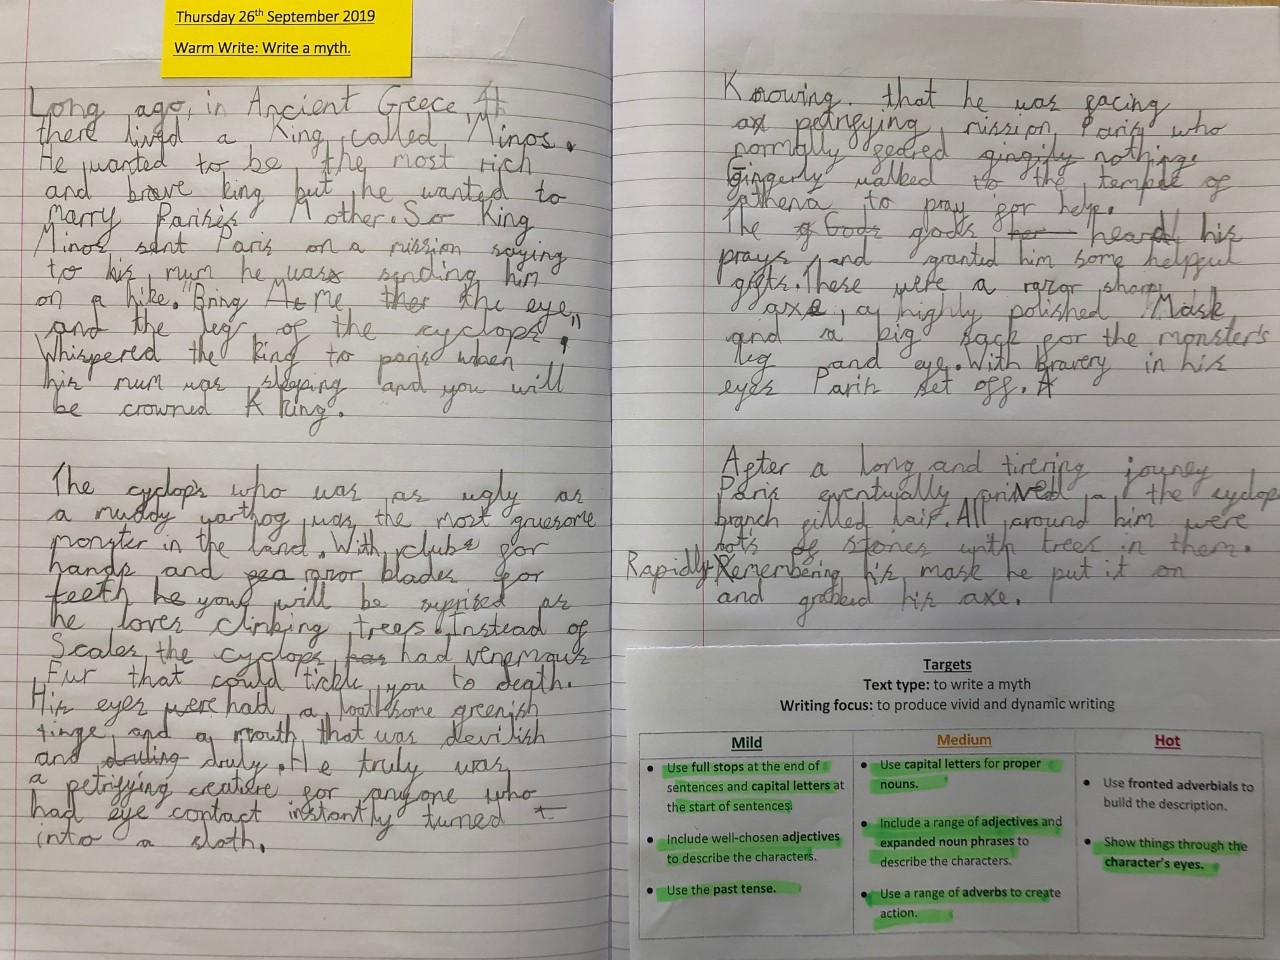 Thursday 26th September 2019
Warm Write: Write a myth.
Long ago, in Ancient Greece,
there lived a King called Minos.
He wanted to be the most rich
and brave king but he wanted to
marry Paris's Mother. So King
Minos sent Paris on a mission saying
to his mum he was sending him
on a hike. "Bring me the eye
and the legs of the cyclops",
Whispered the King to paris when
his mum was sleeping and you will
be crowned King.
The cyclops who was as ugly as
a muddy warthog was the most gruesome
monster in the land. With clubs for
hands and razor blades for
teeth he you will be suprised as
he loves climbing trees. Instead of
Scales, the cyclops had venemous
Fur that could tickle you to death.
His eyes were had a loathsome greenish
tinge, and a mouth that was devilish
and druly. He truly was
a petrifying creature for anyone who
had eye contact instantly turned
into a sloth.
Knowing that he was facing
a petrifying mission, Paris who
normally feared nothing
Gingerly walked to the temple of
athena to pray for help.
The gods heard his
prays and granted him some helpful
gifts. These were a razor sharp
axe, a highly polished Mask
and a big sack for the monster's
leg and eye. With bravery in his
eyes Paris set off.
After a long and tirering journey
Paris eventually arrived the cyclop
branch filled lair. All around him were
of stones with trees in them.
Rapidly Remembering his mask he put it on
and grabed his axe.
Targets
Text type: to write a myth
Writing focus: to produce vivid and dynamic writing
Mild
Use full stops at the end of
sentences and capital letters at
the start of sentences.
Include well-chosen adjectives
to describe the characters.
Use the past tense.
Medium
Use capital letters for proper
nouns.
Include a range of adjectives and
expanded noun phrases to
describe the characters.
Use a range of adverbs to create
action.
Hot
Use fronted adverbials to
build the description.
Show things through the
character's eyes.